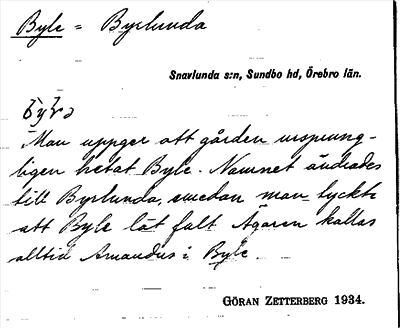 Byle = Byrlunda
Snavlunda s:n, Sundbo hd, Örebro län.
Man uppger att gården ursprung-
ligen hetat Byle. Namnet ändrades
till Byrlunda, emedan man tyckte
att Byle lät fult. Ägaren kallas
alltid Amandus i Byle.
GÖRAN ZETTERBERG 1934.